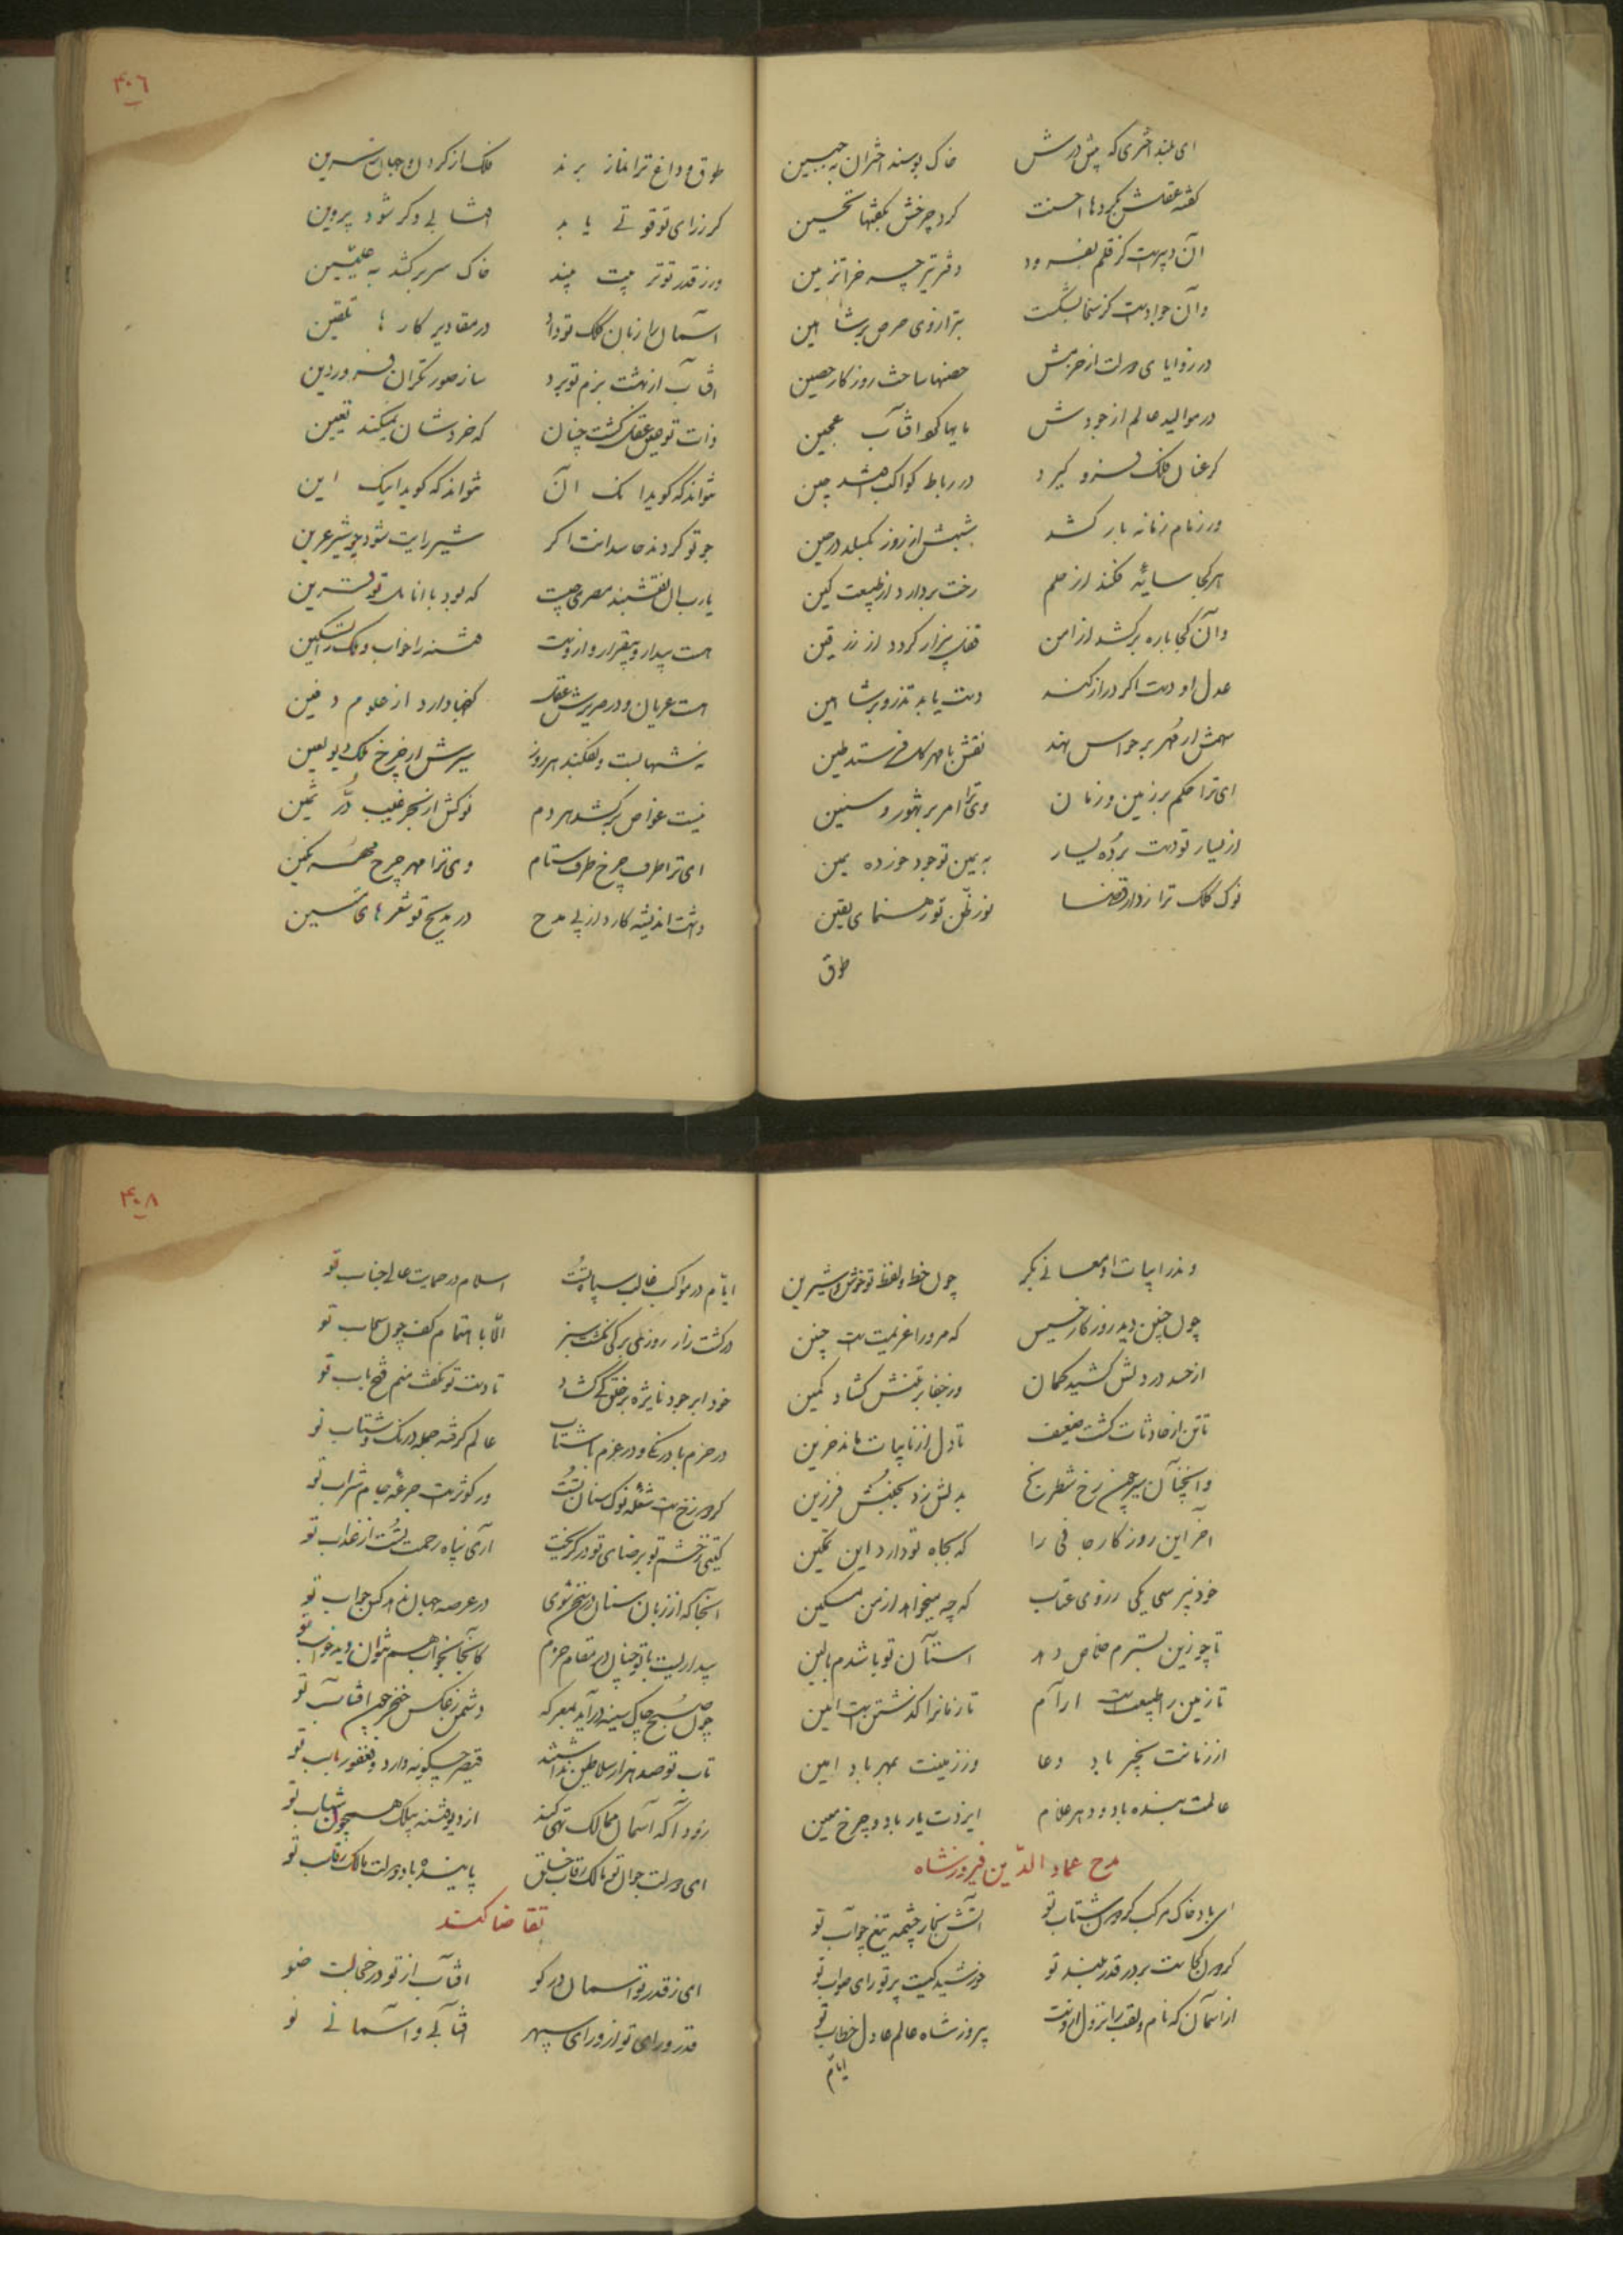 ای بلند اختری که پیش درش خاک بوسند اختران به جبین
گفته عقلش بکردها احسنت کرده چرخش بگفتها تحسین
آن دبیرست کز قلم بفسرود دفتر تیر چرخ را تزیین
وآن جوادست کز سخا بشکست بترازوی حرص بر شاهین
در زوایای دولت از حزمش حصنها ساخت روزگار حصین
در موالید عالم از جودش مایها کرد آفتاب عجین
گر عنان فلک فرو گیرد در رباط کواکب افتد چین
ور زمام زمانه باز کشد شبش از روز بگسلد در حین
هر کجا سایهٔ فکند از حلم رخت بردارد از طبیعت کین
وآن کجا باره برکشد از امن فتنه بیزار گردد از زر قین
عدل او دست اگر دراز کند دست یابد تذرو بر شاهین
سهمش ار مهر بر حواس نهد نقش با مهر کل فرستد طین
ای ترا حکم بر زمین و زمان وی ترا امر بر شهور و سنین
از یسار تو دست برده یسار به یمین تو جود خورده یمین
نوک کلک ترا زدار قضا نور ظن تو رهنمای یقین
طوق
۴۰۶
طوق و داغ ترا نماز برند فلک از گردن و جهان ز سرین
گر ز رای تو قوتی یابد آفتابی دگر شود پروین
ور ز قدر تو تربیت بیند خاک سر برکشد به علیین
آسمان را زبان کلک تو داد در مقادیر کارها تلقین
آفتاب از بهشت بزم تو برد ساز صورتگران فروردین
ذات تو عین عقل گشت چنان که خرد شان نمیکند تعیین
نتواند که گوید اینک آن نتواند که گوید اینک این
چو تو گردند حاسدانت اگر شیر رایت شود چو شیر عرین
یارب آن نقشبند مصری چیست که بود با انامل تو قرین
هست بیدار و بیقرار و ازوست فتنه را خواب و ملک را تسکین
هست عریان و در صریرش عقل گنجها دارد از علوم دفین
نه شهابست و بفکند هر روز سرش از چرخ ملک دیو لعین
نیست غواص و برکشد هر دم نوکش از بحر غیب در ثمین
ای ترا طرف چرخ طرف ستام وی ترا مهر چرخ مهر نگین
داشت اندیشه کارد از پی مدح در مدیح تو شعرهای متین
وندر ابیات او معانی بکر چون خط و لفظ تو خوش و شیرین
چون چنین دید روزگار خسیس که مرو را عزیمت است چنین
از حسد در دلش کشید کمان وز جفا بر تنش گشاد کمین
تا تن از حادثات گشت ضعیف تا دل از نایبات ماند حزین
و اینچنان سیر چون رخ شطرنج بدلش زد بجنبش فرزین
آخر این روزگار جافی را که بجاه تو دارد این تمکین
خود نپرسی یکی ز روی عتاب که چه میخواهد از من مسکین
تا چو زین بسترم خلاص دهد آستان تو باشدم بالین
تا زمین را طبیعت است آرام تا زمان را گذشتن است آیین
از زمانت بخیر باد دعا وز زمینت بمهر باد امین
عالمت بنده باد و دهر غلام ایزدت یار باد و چرخ معین
مدح عماد الدّین فیروزشاه
ای باد خاک مرکب گردون شتاب تو آتش بخار چشمهٔ تیغ چو آب تو
گردون کجاست بر در قدر بلند تو خورشید کیست پرتو رای صواب تو
از آسمان که نام و لقب را نزول ازوست پیروزشاه عالم عادل خطاب تو
ایام
۴۰۸
ایام در مواکب غالب سپاه تست اسلام در حمایت عالی جناب تو
در کشت زار روزی برگی نگشت سبز الا با اهتمام کف چون سحاب تو
خود ابر جود نایژه بر خلق کی گشاد تا دست تو نگفت منم فتح باب تو
در حزم با درنگ و در عزم با شتاب عالم گرفته جمله درنگ و شتاب تو
گر دوزخ است شعله نوک سنان تست ور کوثرست جرعهٔ جام شراب تو
گیتی ز خشم تو برضای تو در گریخت آری پناه رحمت تست از عذاب تو
آنجا که از زبان سنان در سخن شوی در عرصه جهان ندهد کس جواب تو
بیداریست با تو چنان در مقام حزم کآنجا بخواب هم نتوان دید خواب تو
چون صبح چاک سینه درآید بمعرکه دشمن ز عکس خنجر چون آفتاب تو
تاب تو صد هزار سلاطین نداشتند قیصر چگونه دارد و فغفور تاب تو
زودا که آسمان ممالک تهی کند از دیو فتنه بیلک همچون شهاب تو
ای دولت جوان تو مالک رقاب خلق پاینده باد دولت مالک رقاب تو
تقاضا کند
ای ز قدر تو آسمان در گو آفتاب از تو در خجالت ضو
قدر و رای تو از ورای سپهر آفتابی و آسمانی نو